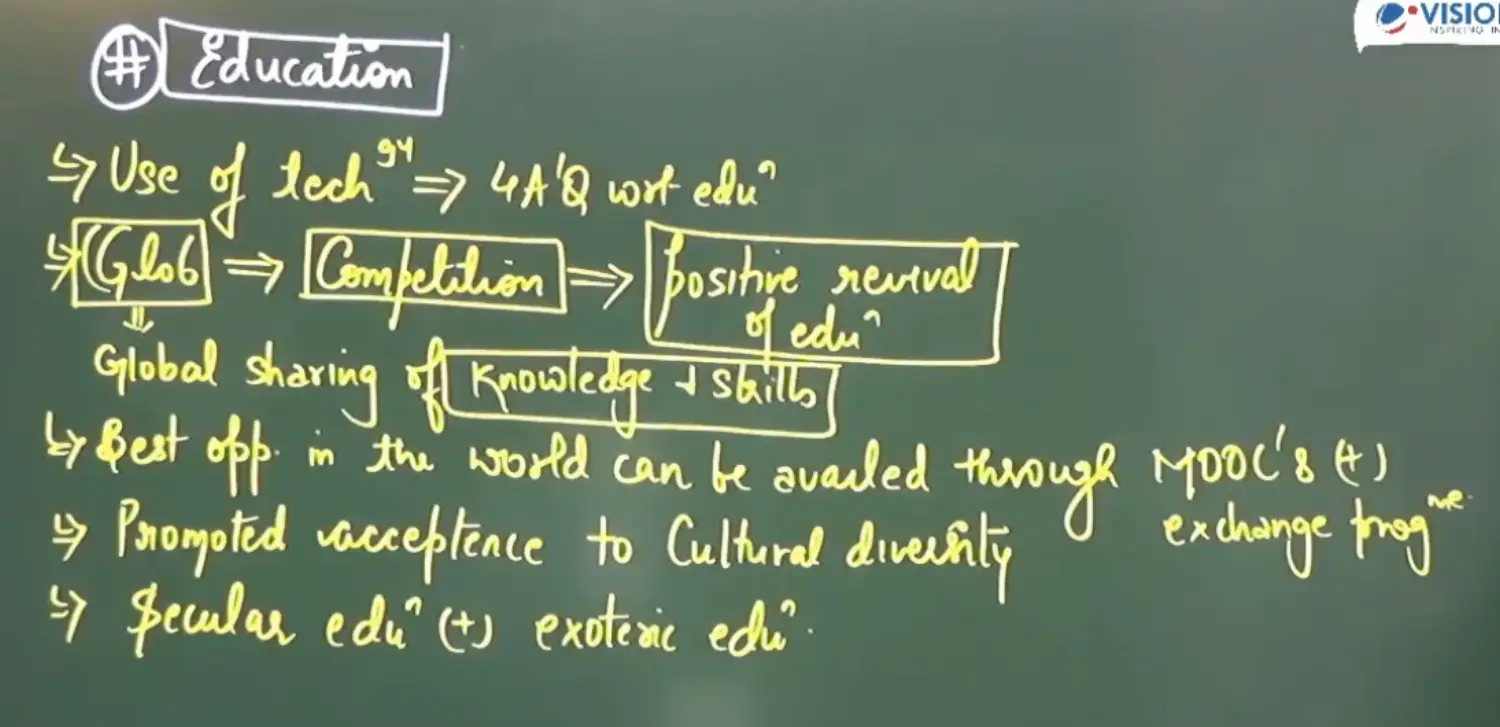 VISIO
INSPIRING IN
# Education
↳ Use of tech^gy ⇒ 4A'Q wrt edu^n
↳ Glob ⇒ Competition ⇒ positive revival
of edu^n
⇓
Global sharing of Knowledge + Skills
↳ Best opp. in the world can be availed through MOOC's (+)
exchange prog^me.
↳ Promoted acceptence to Cultural diversity
↳ Secular edu^n (+) exoteric edu^n.